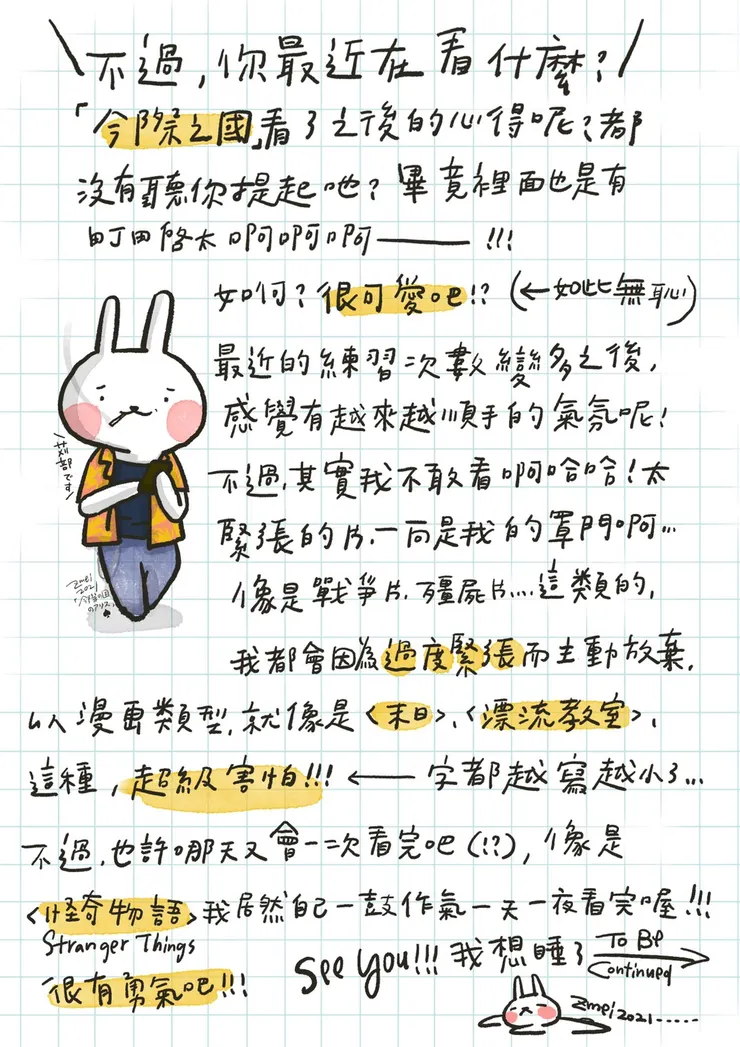 不過，你最近在看什麼？
「今際之國」看了之後的心得呢？都
沒有聽你提起吔？畢竟裡面也是有
町田啓太啊啊啊——!!!
如何？很可愛吧!?（←如此無恥）
最近的練習次數變多之後，
感覺有越來越順手的氣氛呢！
不過，其實我不敢看啊哈哈！太
緊張的片，一向是我的罩門啊…
像是戰爭片，殭屍片…，這類的，
我都會因為過度緊張而主動放棄，
\苅部です/
Zmei
2021
「今際の国
のアリス」
以漫畫類型，就像是<末日>、<漂流教室>、
這種，超級害怕!!!←——字都越寫越小了…
不過，也許哪天又會一次看完吧(!?)，像是
<怪奇物語>我居然自己一鼓作氣一天一夜看完喔!!!
Stranger Things
很有勇氣吧!!!
See You!!! 我想睡了 To Be Continued
Zmei 2021......